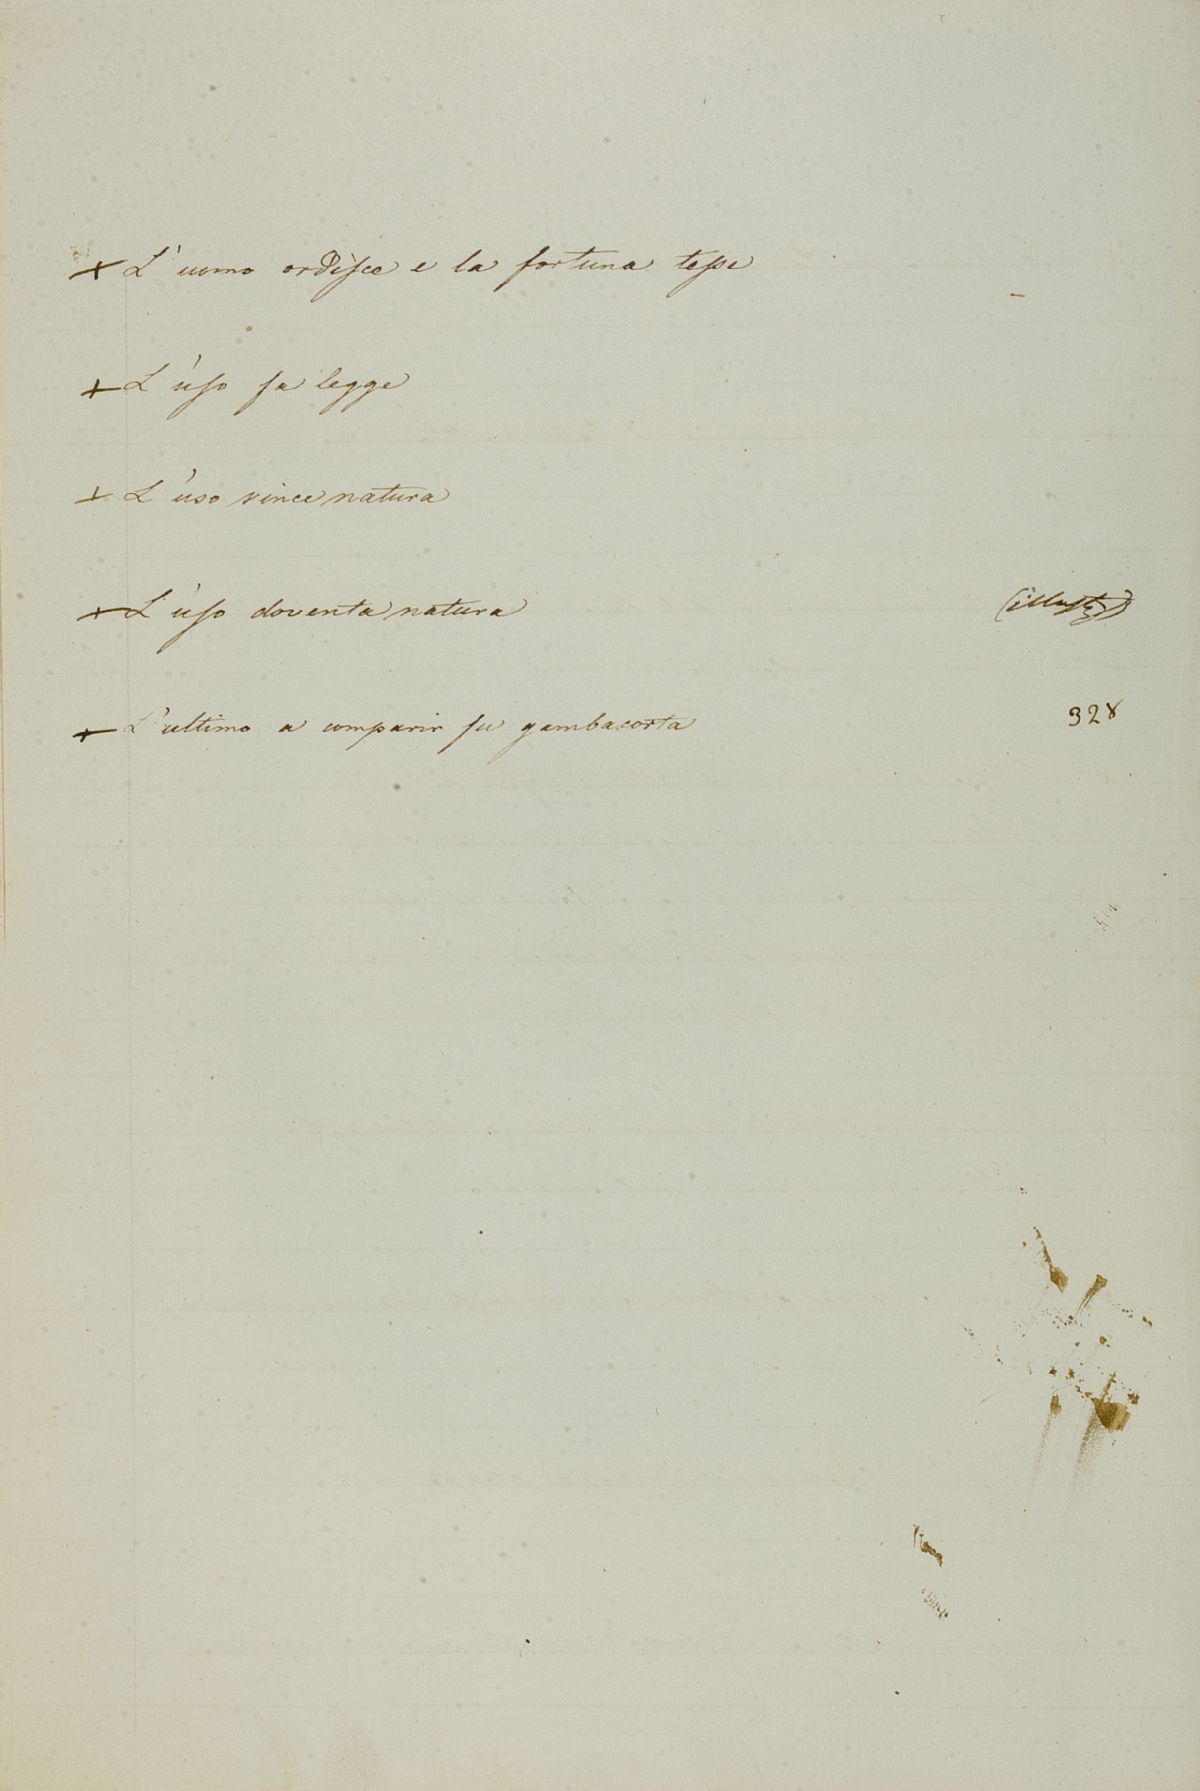 + L'uomo ordisce e la fortuna tesse
+ L'uso fa legge
+ L'uso vince natura
+ L'uso doventa natura (illustr)
+ L'ultimo a comparir fu gambacorta 328